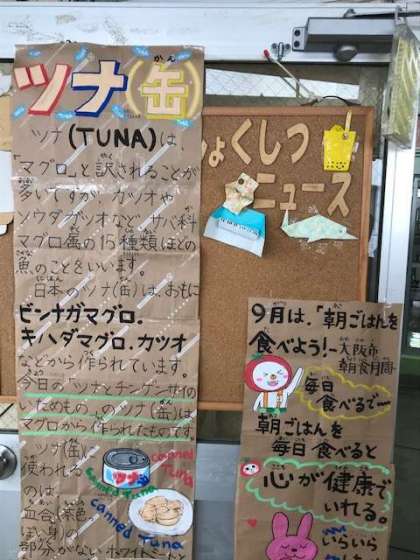 ツナ(缶)
かん
ツナ(TUNA)は、
「マグロ」と訳されることが
多いですが、カツオや
ソウダガツオなど、サバ科
マグロ属の15種類ほどの
魚のことをいいます。
日本のツナ(缶)は、おもに
ビンナガマグロ、
キハダマグロ、カツオ
などから作られています。
今日の「ツナとチンゲンサイの
いためもの」のツナ(缶)は
マグロから作られたものです。
ツナ(缶)に
使われる
のは
血合(茶色っ
ぽい身)の
部分がないホワイトミートと
ツナ
canned Tuna
canned Tuna
canned Tuna
くしつ
ニュース
9月は、「朝ごはんを
食べよう!」
大阪市
朝食月間
毎日
食べるでー
朝ごはんを
毎日食べると
心が健康で
いれる。
いらいら